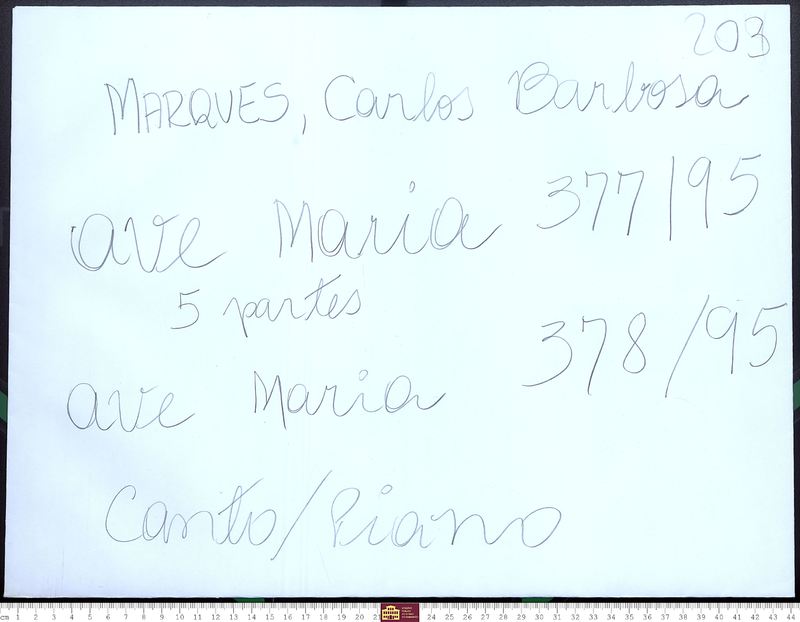 203
MARQUES, Carlos Barbosa
Ave Maria 377/95
5 partes
378/95
Ave Maria
Canto/Piano
cm 1 2 3 4 5 6 7 8 9 10 11 12 13 14 15 16 17 18 19 20 24 25 26 27 28 29 30 31 32 33 34 35 36 37 38 39 40 41 42 43 44